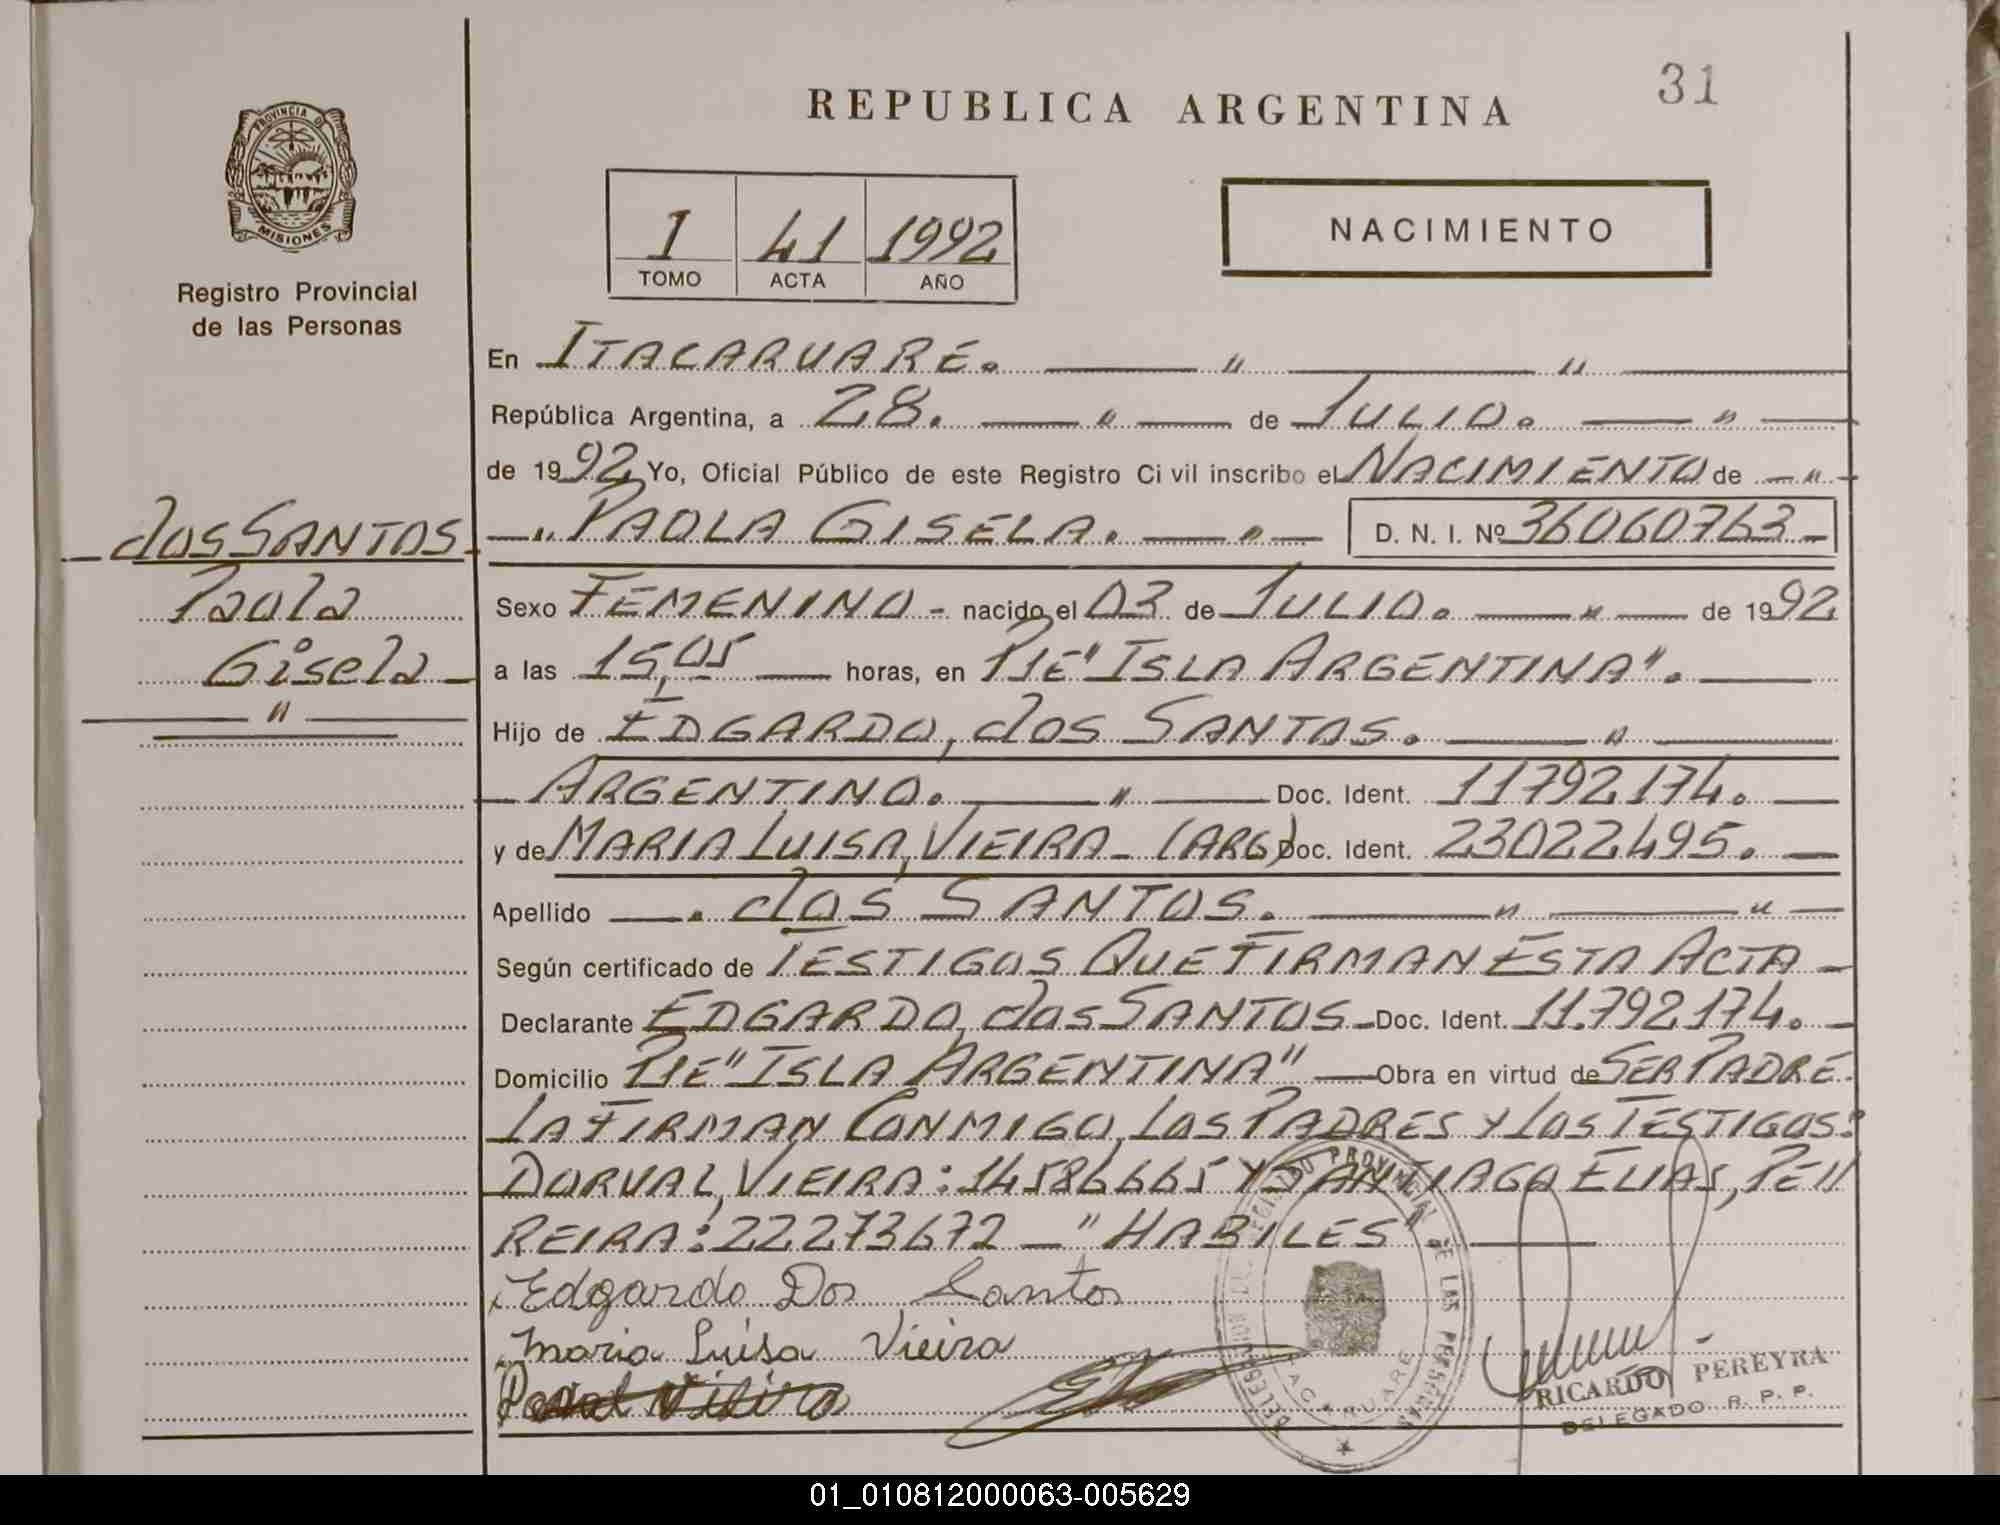 31
REPUBLICA ARGENTINA
PROVINCIA D
MISIONES
Registro Provincial
de las Personas
1 41 1992
TOMO ACTA AÑO
NACIMIENTO
En ITACARUARÉ. — " — " —
República Argentina, a 28. — " — de JULIO. — " —
de 1992 Yo, Oficial Público de este Registro Civil inscribo el NACIMIENTO de — " —
dos SANTOS
Paola
Gisela —
— " —
— " PAOLA GISELA. — " — D. N. I. Nº 36060763 —
Sexo FEMENINO - nacido el 03 de JULIO. — " — de 1992
a las 15,05 — horas, en PJE "ISLA ARGENTINA". —
Hijo de EDGARDO, dos SANTOS. — " —
— ARGENTINO. — " — Doc. Ident. 11792174. —
y de MARIA LUISA, VIEIRA - (ARG) Doc. Ident. 23022495. —
Apellido — . dos SANTOS. — " — " —
Según certificado de TESTIGOS QUE FIRMAN ESTA ACTA —
Declarante EDGARDO, dos SANTOS - Doc. Ident. 11.792174. —
Domicilio PJE "ISLA ARGENTINA" — Obra en virtud de SER PADRE.
LA FIRMAN CONMIGO, LOS PADRES Y LOS TESTIGOS:
DORVAL, VIEIRA: 14586665 Y SANTIAGO ELIAS, PE//
REIRA: 22273672 — "HABILES" —
Edgardo Dos Santos
Maria Luisa Vieira
REGISTRO PROVINCIAL DE LAS PERSONAS
ITACARUARE
RICARDO PEREYRA
DELEGADO R. P. P.
01_010812000063-005629